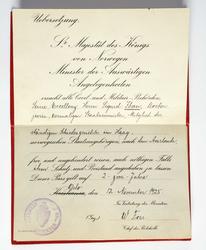 Übersetzung.
Sr. Majestät des Königs
von Norwegen
Minister der Auswärtigen
Angelegenheiten
ersucht alle Civil und Militär Behörden
Seine Excellenz Herrn Sigurd Ibsen, Doctor
juris, vormaliger Staatsminister, Mitglied des
Ständigen Schiedsgerichts im Haag,
norwegischen Staatsangehörigen, nach dem Auslande
frei und ungehindert reisen, auch nöthigen Falls
Schutz und Beistand angedeihen zu lassen.
Dieser Pass gilt auf 2 – zwei Jahre
Oslo
den 17. November 1925
In Vertretung des Ministers
(Gez.)
Chef des Passbüros